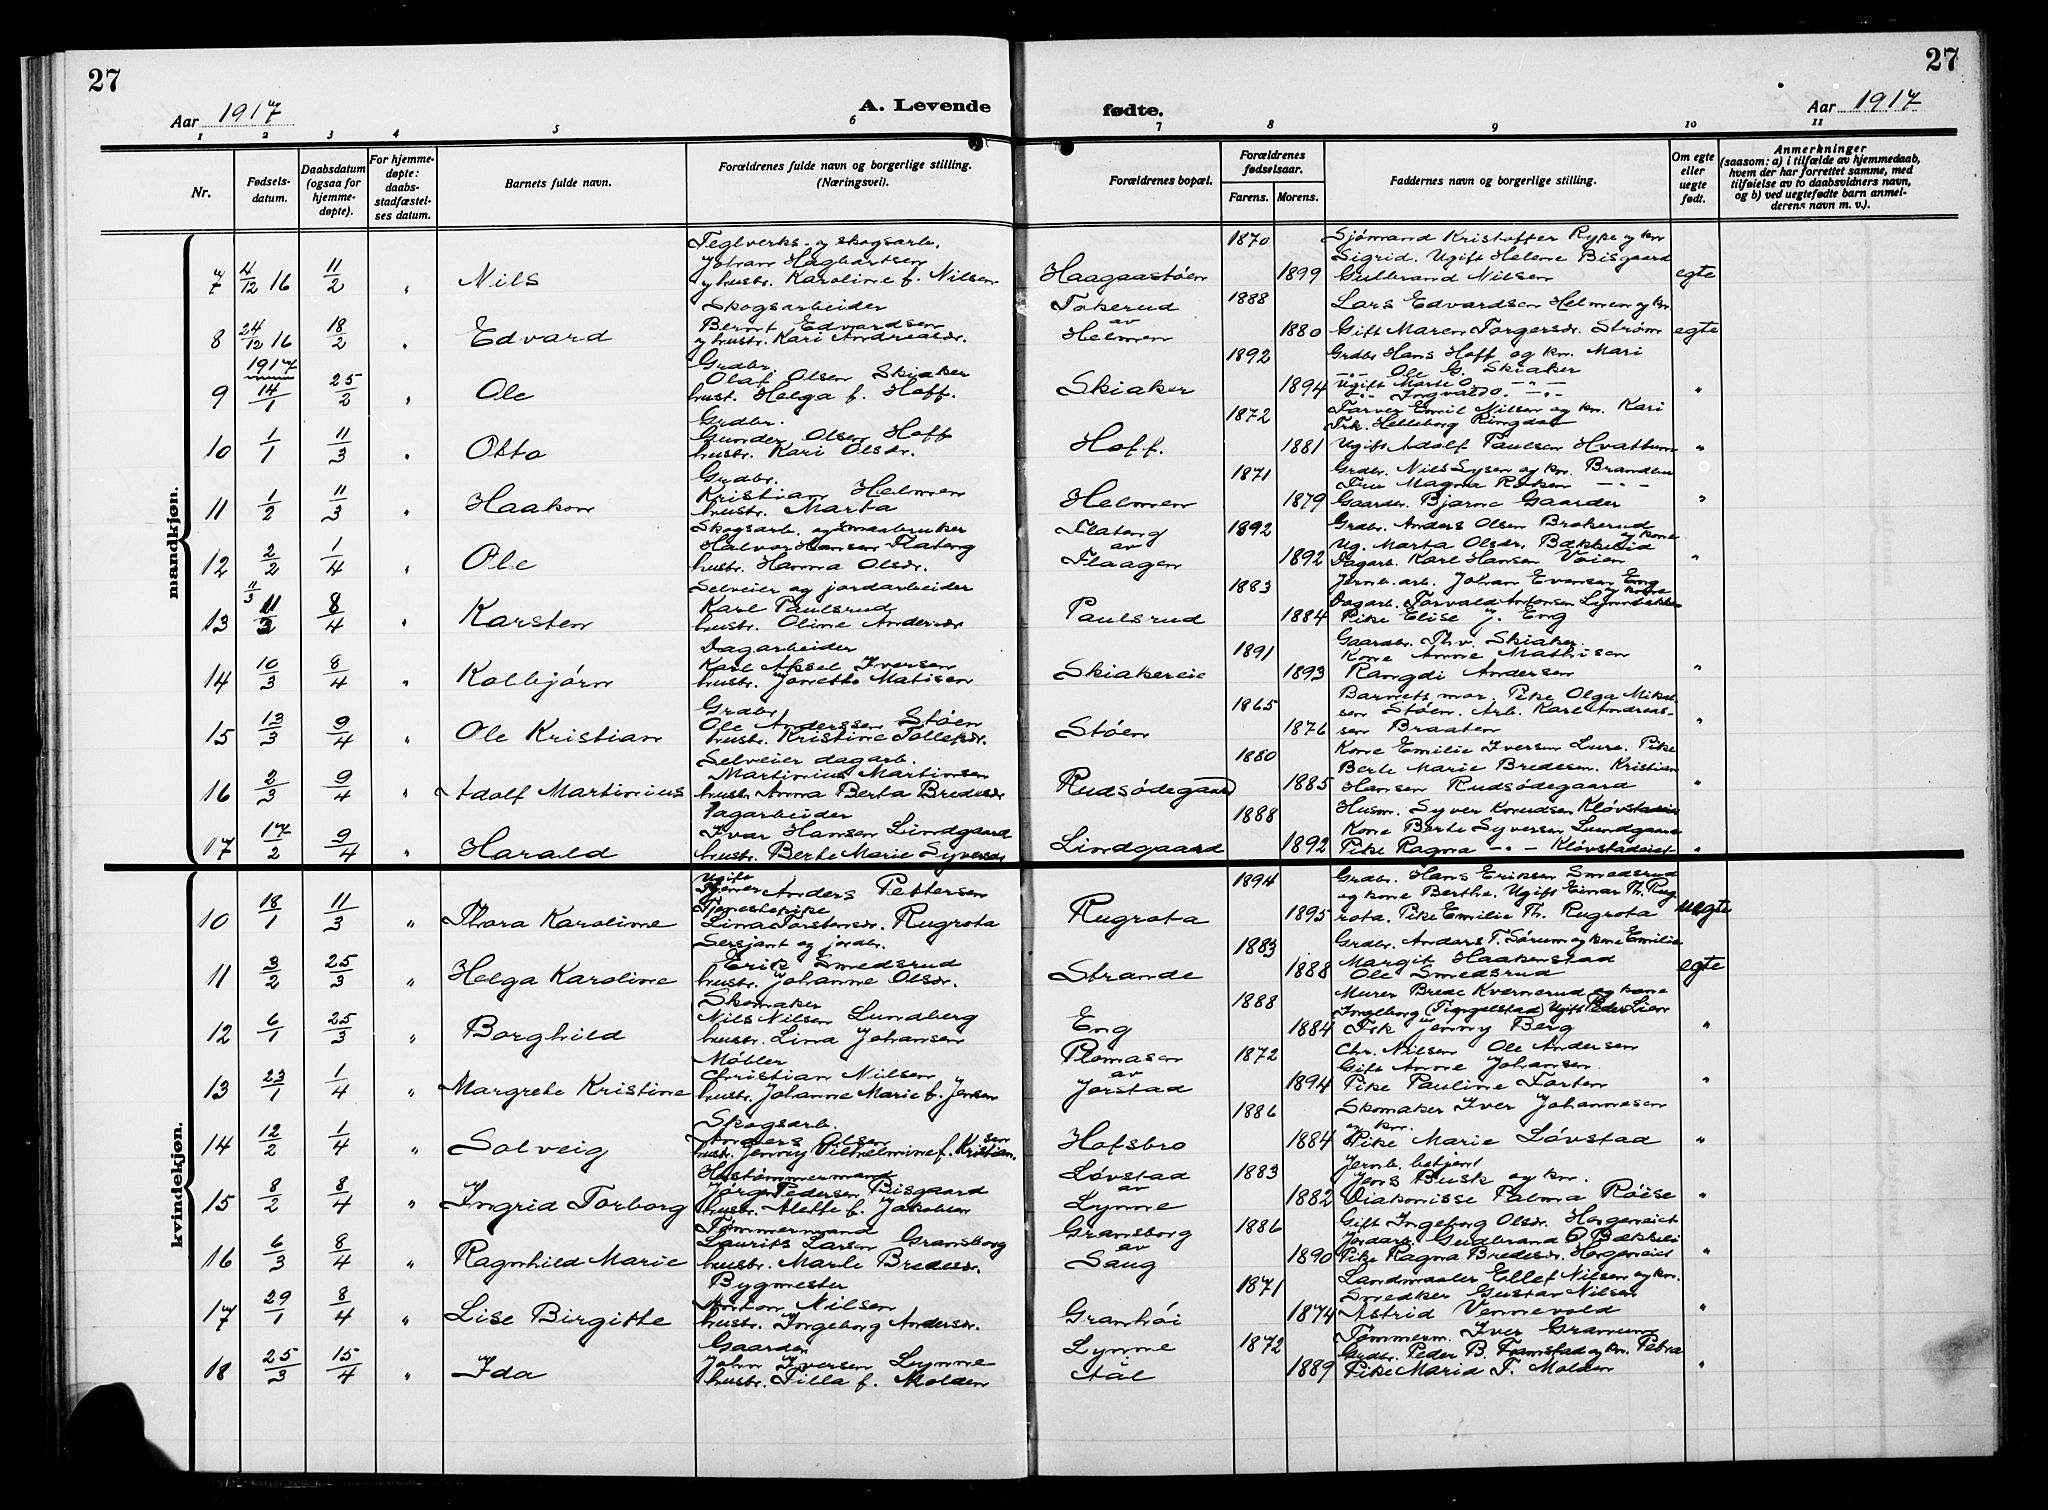 27
Aar 1917
A. Levende
1 2 3 4 5 6
Nr.
Fødsels-
datum.
Daabsdatum
(ogsaa for
hjemme-
døpte).
For hjemme-
døpte:
daabs-
stadfæstel-
ses datum.
Barnets fulde navn.
Forældrenes fulde navn og borgerlige stilling.
(Næringsvei).
27
Aar 1917
fødte.
7 8 9 10 11
Forældrenes bopæl.
Forældrenes
fødselsaar.
Farens. Morens.
Faddernes navn og borgerlige stilling.
Om egte
eller
uegte
født.
Anmerkninger
(saasom: a) i tilfælde av hjemmedaab,
hvem der har forrettet samme, med
tilføielse av to daabsvidners navn,
og b) ved uegtefødte barn anmel-
derens navn m. v.).
mandkjøn.
7 4/12 16 11/2 " Nils
Teglverks- og skogsarb.
Johan Hagbartsen
og hustr. Karoline f. Nilsen
Haagaastøen
1870
1899
Sjømand Kristoffer Rype og kn
Sigrid. Ugift Helene Bisgaard
Gulbrand Nilsen
egte
8 24/12 16 18/2 " Edvard
Skogsarbeider
Bernt Edvardsen
og hustr. Kari Andreasdr.
Tokerud
av
Helmen
1888
1880
Lars Edvardsen Helmen og kn
Gift Maren Torgersdr. Strøm
egte
1917
9 14/1 25/2 " Ole
Grdbr.
Olaf Olsen Skiaker
hust. Helga f. Hoff.
Skiaker
1892
1894
Grdbr Hans Hoff og kn. Mari
-"- Ole G. Skiaker
Ugift Marte O. -"-
-"- Ingvald O. -"-
"
10 1/1 11/3 " Otto
Grdbr.
Gunder Olsen Hoff
hustr. Kari Olsdr.
Hoff.
1872
1881
Farver Emil Nilsen og kn. Kari
Frk. Helleborg Ringdal
Ugift Adolf Paulsen Hvattum
"
11 1/2 11/3 " Haakon
Grdbr.
Kristian Helmen
hustr. Marta
Helmen
1871
1879
Grdbr. Nils Lysen og kn. Branden
Fru Magna -"-
Gaardbr. Bjarne Gaarder
"
12 2/2 1/4 " Ole
Skogsarb. og smaabruker
Halvor Hansen Flateng
hustr. Hanna Olsdr.
Flateng
av
Flaagen
1892
1892
Grdbr. Anders Olsen Brokerud
og kone
Ug. Marta Olsdr. Bækkelid
Dagarb. Karl Hansen Voien
"
11/3
13 11/3 8/4 " Karsten
Selveier og jordarbeider
Karl Paulsrud
hustr. Oline Andersdr
Paulsrud
1883
1884
Jernb. arb. Johan Evensen Eng
og kone
Dagarb. Torvald Antonsen Lynnebakken
Pike Elise J. Eng
14 10/3 8/4 " Kolbjørn
Dagarbeider
Karl Aksel Iversen
hustr. Jonette Matisen
Skiakereie
1891
1893
Gaardbr. Th.v. Skiaker.
Kone Anne Mathisen
Rangdi Andersen
"
15 13/3 9/4 " Ole Kristian
Grdbr.
Ole Anderssen Støen
hustr. Kristine Tollefsdr.
Støen
1865
1876
Barnets mor. Pike Olga Mikal-
sen Støen. Arb. Karl Andreas-
sen Braaten
"
16 2/3 9/4 " Adolf Martinius
Selveier dagarb.
Martinius Martinsen
hustr. Anna Berta Bredesdr
Rudsødegaard
1880
1885
Kone Emilie Iversen Lure. Pike
Berte Marie Bredesen. Kristian
Hansen Rudsødegaard
"
17 17/2 9/4 " Harald
Dagarbeider
Ivar Hansen Lindgaard
hustr. Berte Marie Syversdr
Lindgaard
1888
1892
Husm. Syver Knudsen Kløvstadeie
Kone Berte Syversen Lundgaard
Pike Ragna -"- Kløvstadeiet
"
kvindekjøn.
10 18/1 11/3 " Thora Karoline
Ugift
Tjener Anders Pettersen
Tjenestepike
Lina Torstensdr. Rugrota
Rugrota
1894
1895
Grdbr. Hans Eriksen Smedsrud
og kone Berthe. Ugift Einar Th. Rug
rota. Pike Emilie Th. Rugrota
uegte
11 3/2 25/3 " Helga Karoline
Sersjant og jordbr.
Erik Smedsrud
hustr. Johanne Olsdr.
Strande
1883
1888
Grdbr. Anders T. Sørum og kone Emilie
Margit Haakenstad
Ole Smedsrud
egte
12 6/1 25/3 " Borghild
Skomaker
Nils Nilsen Lundberg
hustr. Lina Johansen
Eng
1888
1884
Murer Brede Kværnerud og kone
Ingeborg (Fingelstad) Ugift Peder Lien
Frk Jenny Berg
"
13 23/1 1/4 " Margrete Kristine
Møller
Christian Nilsen
hustr. Johanne Marie f. Jensen
Plomasen
av
Jorstad
1872
1894
Chr. Nilsen Ole Andersen
Gift Anne Johansen.
Pike Pauline Torten
"
14 12/2 1/4 " Solveig
Skogsarb.
Anders Olsen
hustr. Jenny Vilhelmine f. Kristian.
sen
Hofsbro
1886
1884
Skomaker Iver Johannesen
og kn.
Pike Marie Løvstad
"
15 8/2 8/4 " Ingrid Torborg
Hustømmermand
Jørgen Pedersen Bisgaard
hustr. Alette f. Jakobsen
Løvstad
av
Lynne
1883
1882
Jernb. betjent
Jens Busk og kn.
Diakonisse Palma Røise
"
16 6/3 8/4 " Ragnhild Marie
Tømmermand
Laurits Larsen Gransborg
hustr. Marte Bredesdr.
Gransborg
av
Saug
1886
1890
Gift Ingeborg Olsdr. Horgeneiet
Jordarb. Gudbrand O Bækkeli
Pike Ragna Bredesdr. Horgeneiet
"
17 29/1 8/4 " Lise Birgitte
Bygmester
Anton Nilsen
hustr. Ingeborg Andersdr.
Granhøi
1871
1874
Landmaaler Ellef Nilsen og kn.
Snedker Gustav Nilsen
Astrid Vennevold
"
18 25/3 15/4 " Ida
Gaardbr
John Iversen Lynne
hustr. Tilla f. Molden
Lynne
i
Aal
1872
1889
Tømmerm. Iver Granum
Grdbr. Peder B. Framstad og kn. Petra
Pike Maria T. Molden
"